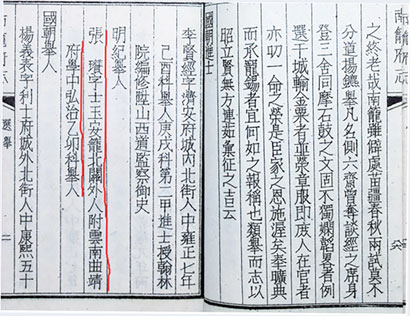 之終老哉南籠雖僻處苗疆春秋兩試莫不
分道揚鑣舉凡名側六齋實奪談經之席身
登三舍同摩石鼓之文固不獨嫻韜畧者例
選干城輸金粟者並榮章服即庶人在官者
亦叨一命之榮是臣家之恩施渥矣典
而承寵錫者宜何如之報稱也類舉而志以
昭立賢無方連茹彙征之吉云
國朝進士
李賢經字濟安府城內北街人中雍正七年
己酉科舉人庚戌科第二甲進士授翰林
院編修陞山西道監察御史
明紀舉人
張 字士玉安籠北關外人附雲南曲靖
府學中弘治乙卯科舉人
國朝舉人
楊義表字利士府城外北街人中康熙五十
南籠府志
選舉